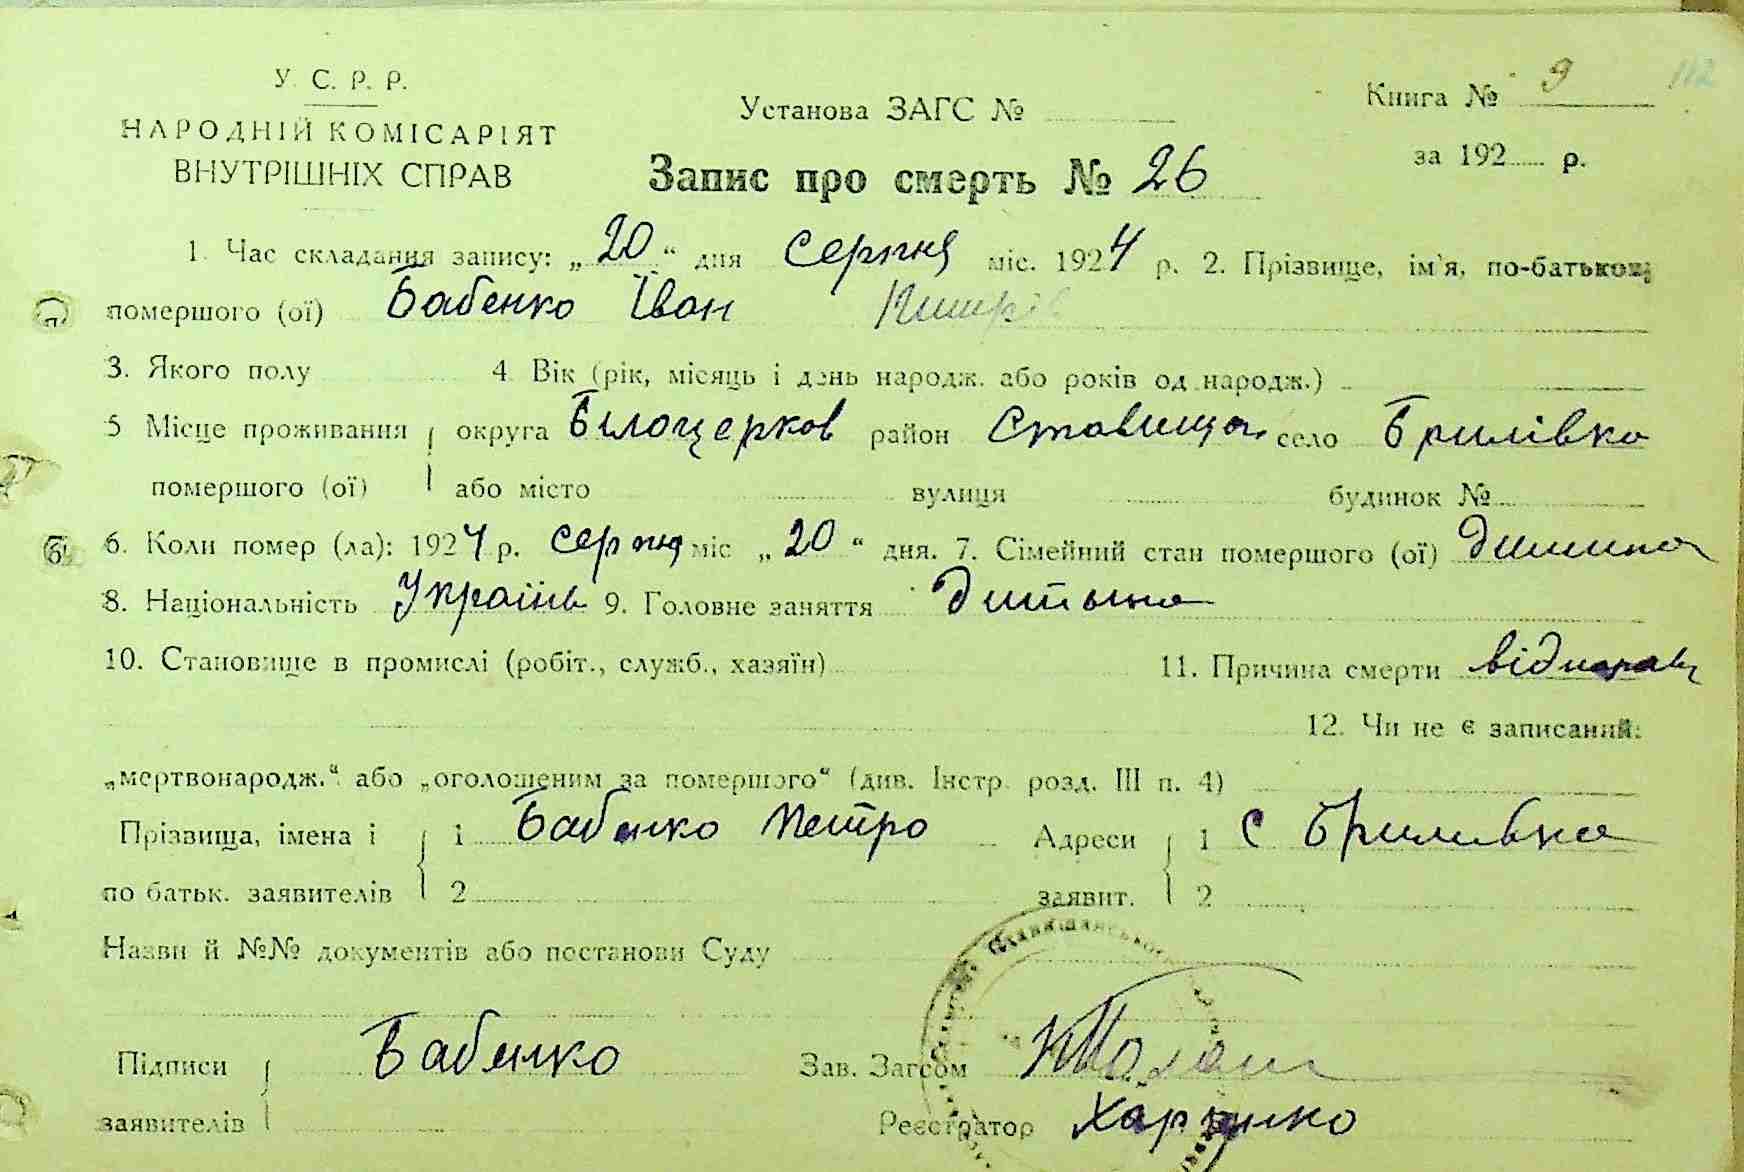 112
У. С. Р. Р.
НАРОДНІЙ КОМІСАРІЯТ
ВНУТРІШНІХ СПРАВ
Установа ЗАГС №
Книга № 9
за 192 р.
Запис про смерть № 26
1. Час складання запису: „20“ дня серпня міс. 1924 р. 2. Прізвище, ім'я, по-батькові
помершого (ої) Бабенко Іван
3. Якого полу 4. Вік (рік, місяць і день народж. або років од народж.)
5 Місце проживання округа Білоцерков район Ставища село Брилівка
помершого (ої) або місто вулиця будинок №
6. Коли помер (ла): 1924 р. серпня міс „20“ дня. 7. Сімейний стан помершого (ої) дитина
8. Національність Україн 9. Головне заняття дитына
10. Становище в промислі (робіт., служб., хазяїн) 11. Причина смерти
12. Чи не є записаний:
„мертвонародж.“ або „оголошеним за помершого“ (див. Інстр. розд. III п. 4)
Прізвища, імена і 1 Бабенко Петро Адреси 1 с Бриливка
по батьк. заявителів 2 заявит. 2
Назви й №№ документів або постанови Суду
Підписи Бабенко Зав. Загсом
заявителів Реєстратор Харченко